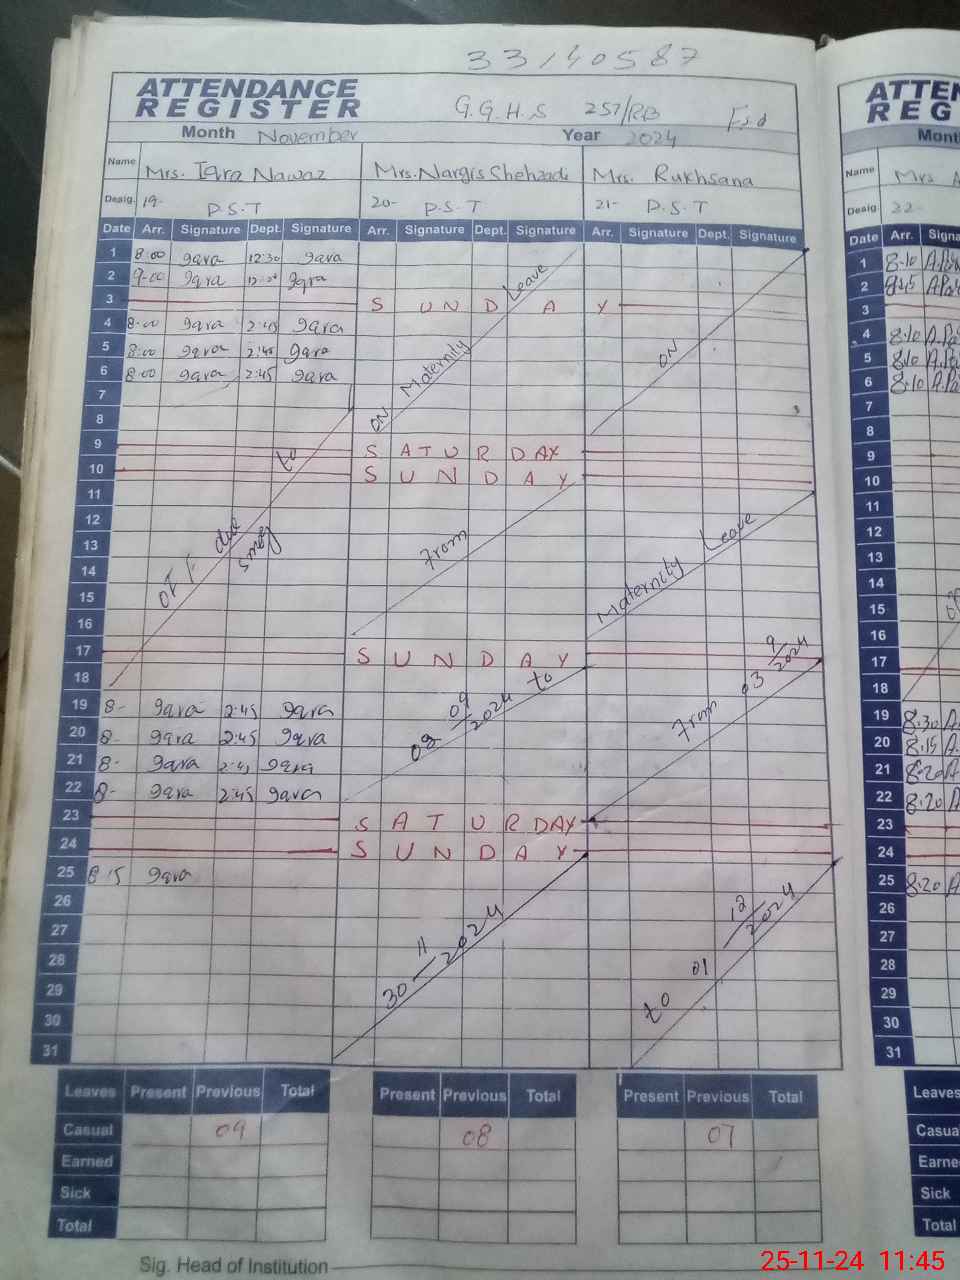 33140587
ATTENDANCE
REGISTER
G.G.H.S 257/RB Fsd
Month November Year 2024
Name Mrs. Iqra Nawaz Mrs. Nargis Shehzadi Mrs. Rukhsana
Desig. 19- P.S.T 20- P.S.T 21- P.S.T
Date Arr. Signature Dept. Signature Arr. Signature Dept. Signature Arr. Signature Dept. Signature
1 8:00 Iqra 12:30 Iqra
2 9-00 Iqra Iqra
3 S U N D A Y
4 8-00 Iqra 2:45 Iqra
5 8:00 Iqra 2:45 Iqra
6 8:00 Iqra 2:45 Iqra
7
8
9 S A T U R D A Y
10 S U N D A Y
11
12
13
14
15
16
17 S U N D A Y
18
19 8- Iqra 2:45 Iqra
20 8- Iqra 2:45 Iqra
21 8- Iqra 2:45 Iqra
22 8- Iqra 2:45 Iqra
23 S A T U R D A Y
24 S U N D A Y
25 8:15 Iqra
26
27
28
29
30
31
off due to smog
ON Maternity Leave
From
09/2024 to
30 11/2024
ON
Maternity Leave
From 03 9/2024
to 01 12/2024
Leaves Present Previous Total Present Previous Total Present Previous Total
Casual 09 08 07
Earned
Sick
Total
Sig. Head of Institution
ATTEN
REG
Month
Name Mrs A
Desig. 22-
Date Arr. Signa
1 8.10
2 8.15
3
4 8.10
5 8.10
6 8.10
7
8
9
10
11
12
13
14
15
16
17
18
19 8.30
20 8.15
21 8.20
22 8.20
23
24
25 8.20
26
27
28
29
30
31
Leaves
Casua
Earne
Sick
Total
25-11-24 11:45